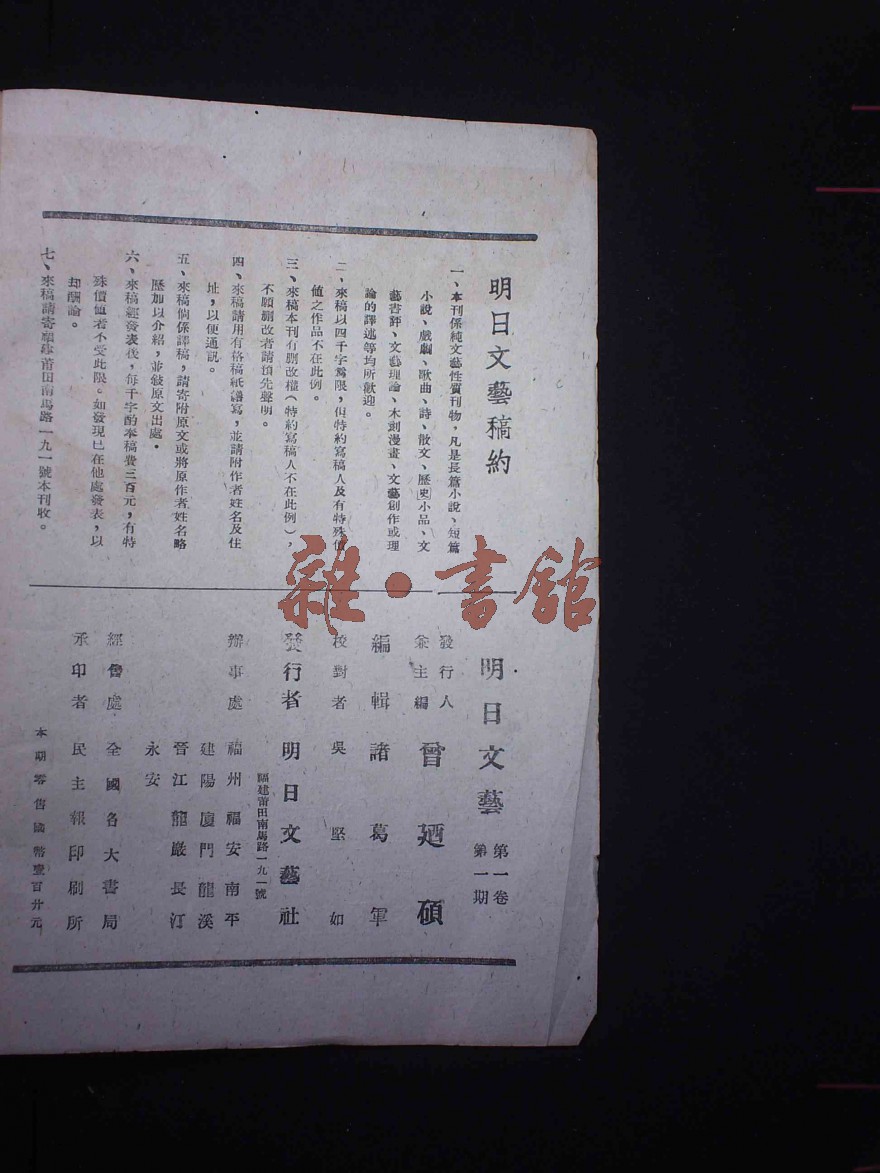 明日文藝稿約
一、本刊係純文藝性質刊物，凡是長篇小說、短篇
小說、戲劇、歌曲、詩、散文、歷史小品、文
藝書評、文藝理論、木刻漫畫、文藝創作或理
論的譯述等均所歡迎。
二、來稿以四千字為限，但特約寫稿人及有特殊價
值之作品不在此例。
三、來稿本刊有刪改權（特約寫稿人不在此例），
不願刪改者請預先聲明。
四、來稿請用有格稿紙繕寫，並請附作者姓名及住
址，以便通訊。
五、來稿倘係譯稿，請寄附原文或將原作者姓名略
歷加以介紹，並發原文出處。
六、來稿經發表後，每千字酌奉稿費三百元，有特
殊價值者不受此限。如發現已在他處發表，以
却酬論。
七、來稿請寄福建莆田南馬路一九一號本刊收。
明日文藝 第一卷
第一期
發行人
兼主編 曾廼碩
編輯 諸葛軍
校對者 吳堅如
發行者 明日文藝社
福建莆田南馬路一九一號
辦事處 福州 福安 南平
建陽 廈門 龍溪
晉江 龍巖 長汀
永安
經售處 全國各大書局
承印者 民主報印刷所
本期零售國幣壹百廿元
雜·書館